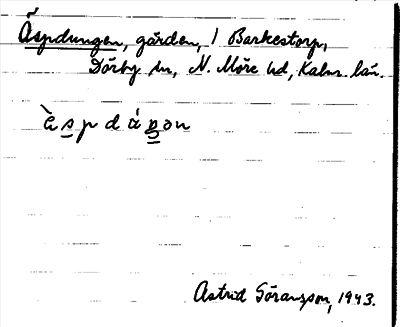 Äspdungen, gården, 1 Barkestorp,
Dörby sn, N. Möre hd, Kalm. län.
Astrid Göransson, 1943.